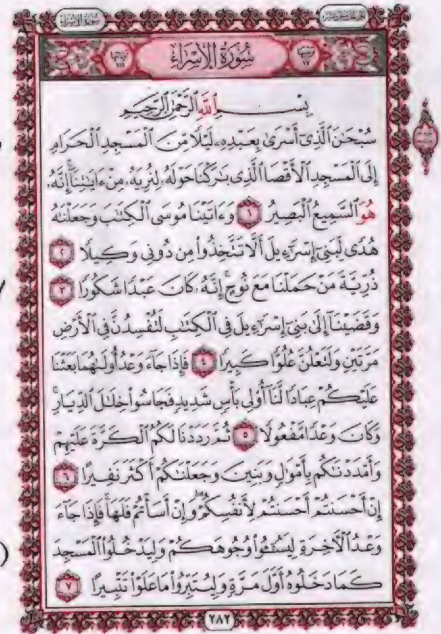 سُورَةُ الْإِسْرَاءِ
بِسْمِ اللَّهِ الرَّحْمَٰنِ الرَّحِيمِ
سُبْحَٰنَ الَّذِىٓ أَسْرَىٰ بِعَبْدِهِۦ لَيْلًا مِّنَ الْمَسْجِدِ الْحَرَامِ
إِلَى الْمَسْجِدِ الْأَقْصَا الَّذِى بَٰرَكْنَا حَوْلَهُۥ لِنُرِيَهُۥ مِنْ ءَايَٰتِنَآ إِنَّهُۥ
هُوَ السَّمِيعُ الْبَصِيرُ ١ وَءَاتَيْنَا مُوسَى الْكِتَٰبَ وَجَعَلْنَٰهُ
هُدًى لِّبَنِىٓ إِسْرَٰٓءِيلَ أَلَّا تَتَّخِذُوا۟ مِن دُونِى وَكِيلًا ٢
ذُرِّيَّةَ مَنْ حَمَلْنَا مَعَ نُوحٍ إِنَّهُۥ كَانَ عَبْدًا شَكُورًا ٣
وَقَضَيْنَآ إِلَىٰ بَنِىٓ إِسْرَٰٓءِيلَ فِى الْكِتَٰبِ لَتُفْسِدُنَّ فِى الْأَرْضِ
مَرَّتَيْنِ وَلَتَعْلُنَّ عُلُوًّا كَبِيرًا ٤ فَإِذَا جَآءَ وَعْدُ أُولَىٰهُمَا بَعَثْنَا
عَلَيْكُمْ عِبَادًا لَّنَآ أُو۟لِى بَأْسٍ شَدِيدٍ فَجَاسُوا۟ خِلَٰلَ الدِّيَارِ
وَكَانَ وَعْدًا مَّفْعُولًا ٥ ثُمَّ رَدَدْنَا لَكُمُ الْكَرَّةَ عَلَيْهِمْ
وَأَمْدَدْنَٰكُم بِأَمْوَٰلٍ وَبَنِينَ وَجَعَلْنَٰكُمْ أَكْثَرَ نَفِيرًا ٦
إِنْ أَحْسَنتُمْ أَحْسَنتُمْ لِأَنفُسِكُمْ وَإِنْ أَسَأْتُمْ فَلَهَا فَإِذَا جَآءَ
وَعْدُ الْءَاخِرَةِ لِيَسُۥٓـُٔوا۟ وُجُوهَكُمْ وَلِيَدْخُلُوا۟ الْمَسْجِدَ
كَمَا دَخَلُوهُ أَوَّلَ مَرَّةٍ وَلِيُتَبِّرُوا۟ مَا عَلَوْا۟ تَتْبِيرًا ٧
٢٨٢